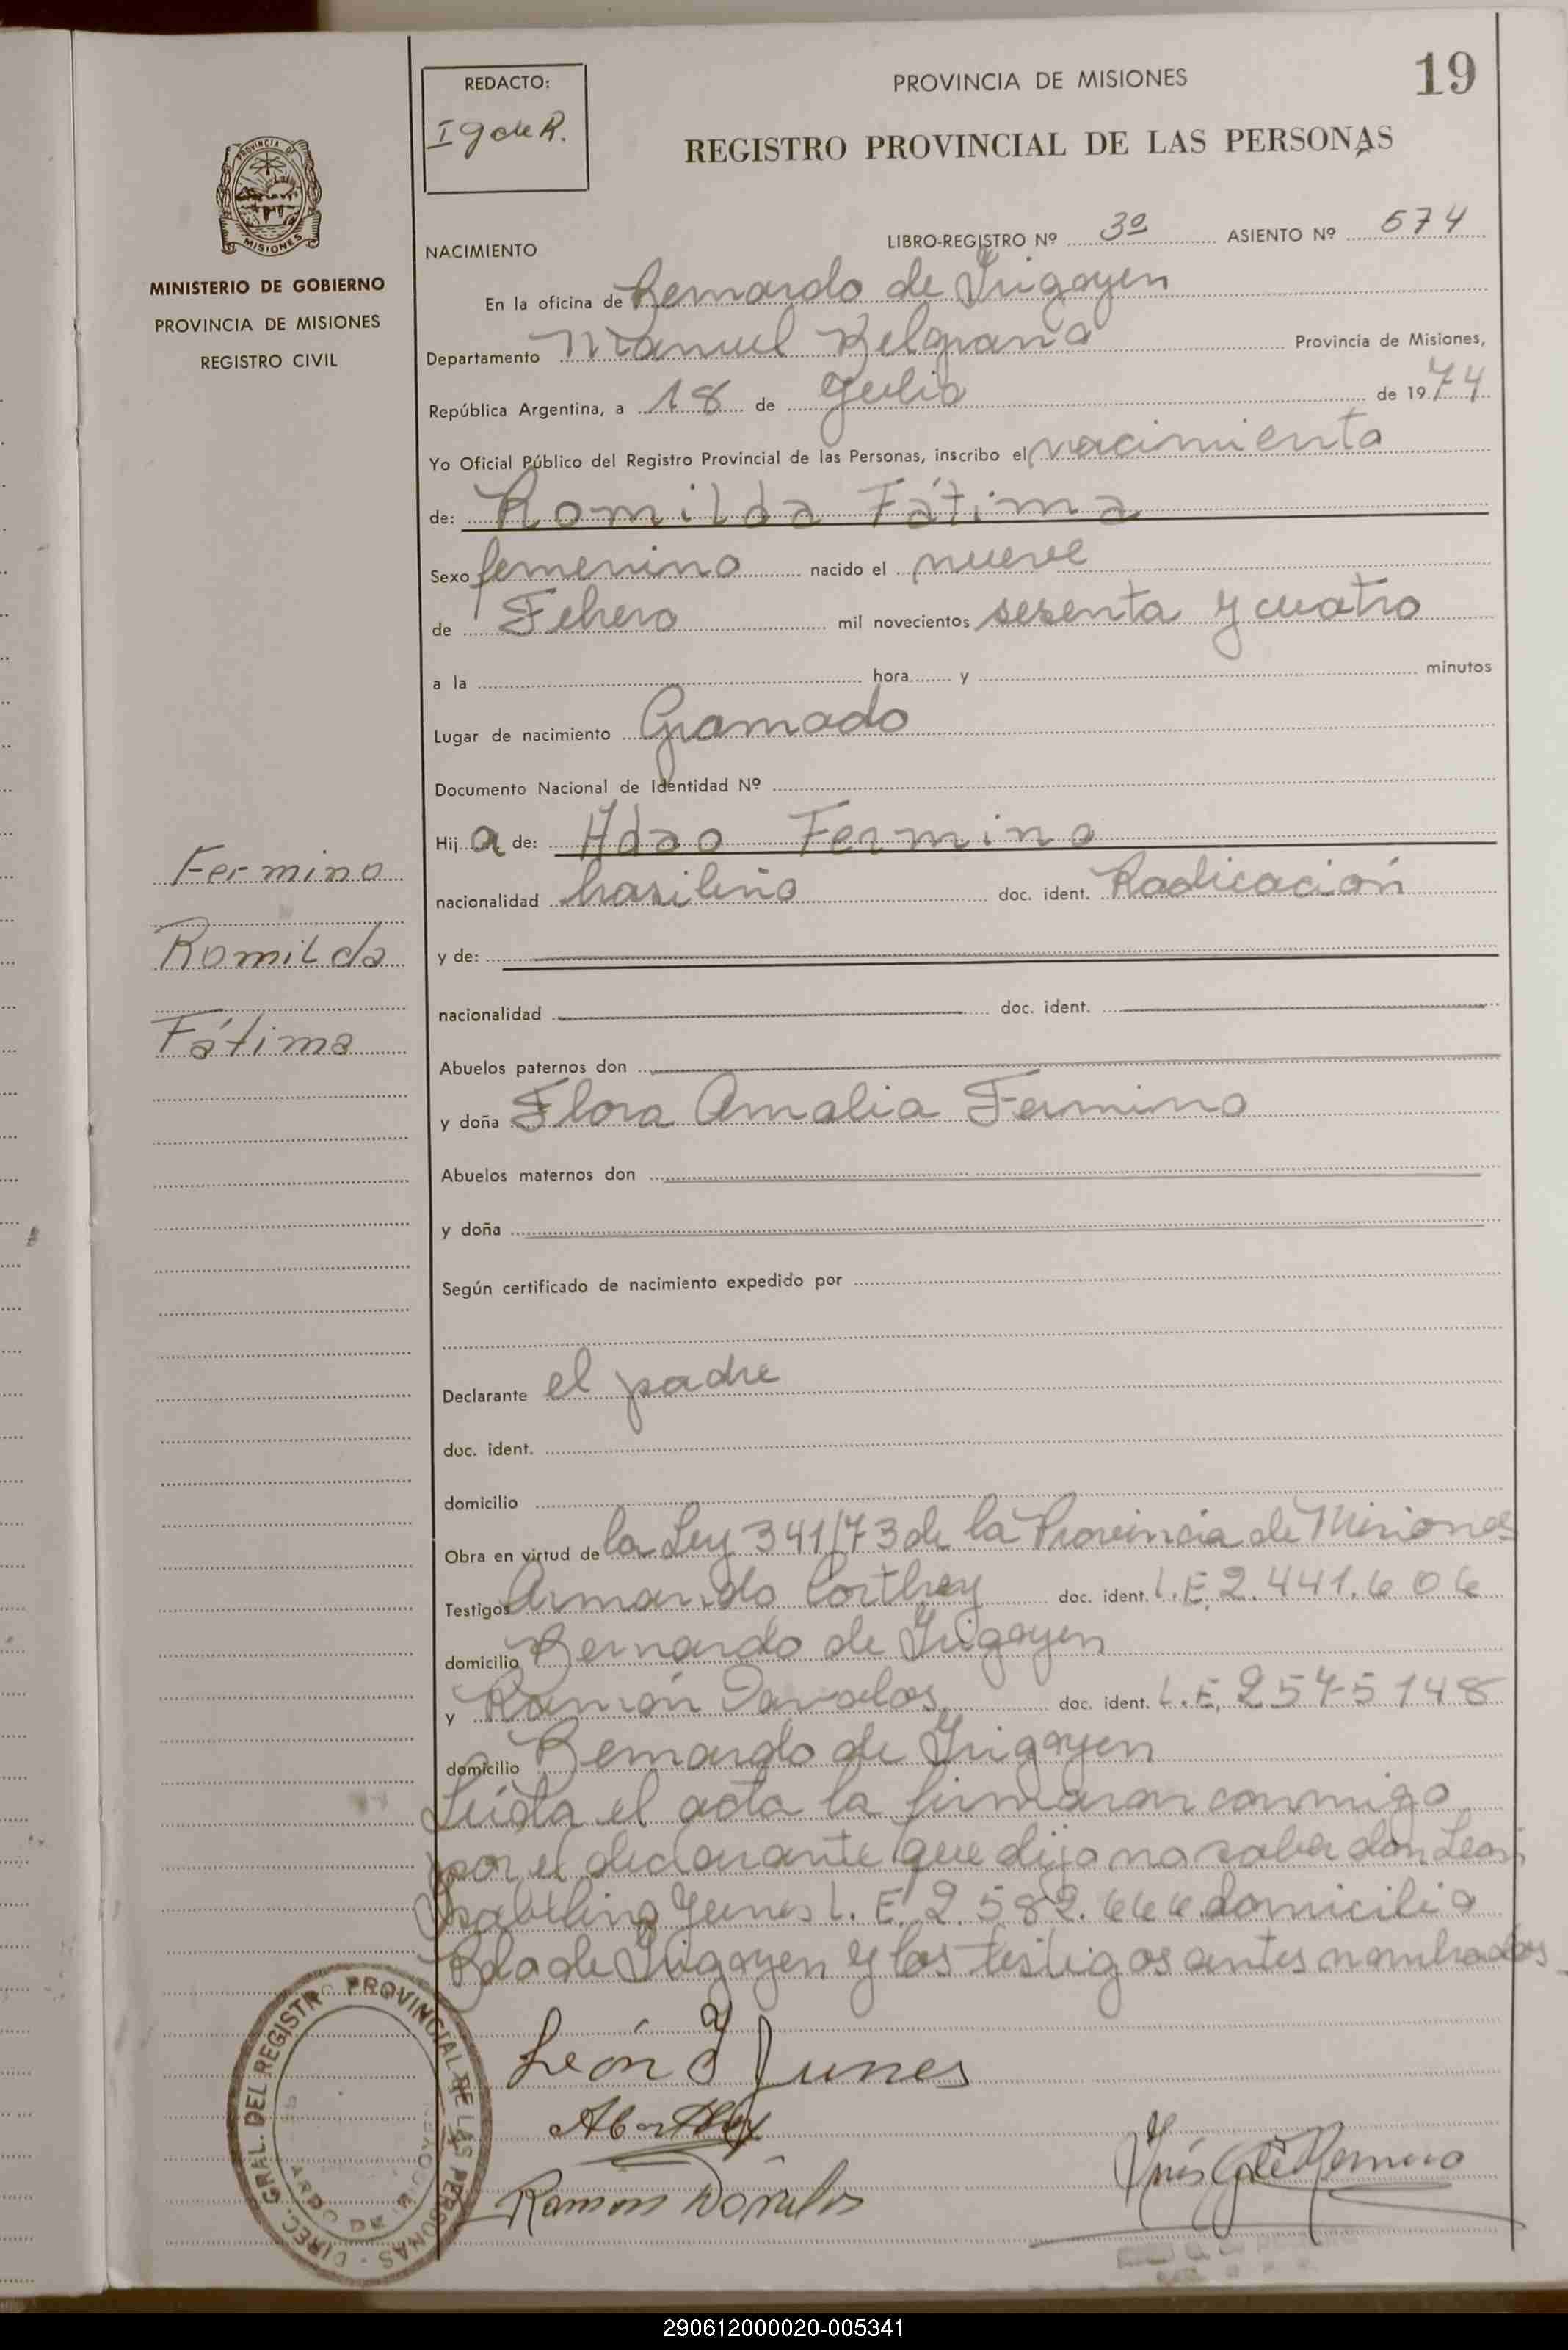 REDACTO:
PROVINCIA DE MISIONES
19
REGISTRO PROVINCIAL DE LAS PERSONAS
MISIONES
MINISTERIO DE GOBIERNO
PROVINCIA DE MISIONES
REGISTRO CIVIL
NACIMIENTO
LIBRO-REGISTRO Nº 3º ASIENTO Nº 574
En la oficina de Bernardo de Irigoyen
Departamento Manuel Belgrano Provincia de Misiones,
República Argentina, a 18 de Julio de 1974
Yo Oficial Público del Registro Provincial de las Personas, inscribo el nacimiento
de: Romilda Fátima
Sexo femenino nacido el nueve
de Febrero mil novecientos sesenta y cuatro
a la hora y minutos
Lugar de nacimiento Gramado
Documento Nacional de Identidad Nº
Hija de: Adao Fermino
Fermino
nacionalidad brasileño doc. ident. Radicación
Romilda
y de:
nacionalidad doc. ident.
Fátima
Abuelos paternos don
y doña Flora Amalia Fermino
Abuelos maternos don
y doña
Según certificado de nacimiento expedido por
Declarante el padre
doc. ident.
domicilio
Obra en virtud de la Ley 341/73 de la Provincia de Misiones
Testigos Armando Corthey doc. ident. L.E. 2.441.606
domicilio Bernardo de Irigoyen
y Ramón Davalos doc. ident. L.E. 2545148
domicilio Bernardo de Irigoyen
Leida el acta la firmaron conmigo
por el declarante que dijo no saber don León
Junes L.E. 2.582.666 domicilio
Bdo de Irigoyen y los testigos antes nombrados
León J Junes
Ramon Dávalos
DIREC. GRAL. DEL REGISTRO PROVINCIAL DE LAS PERSONAS
290612000020-005341